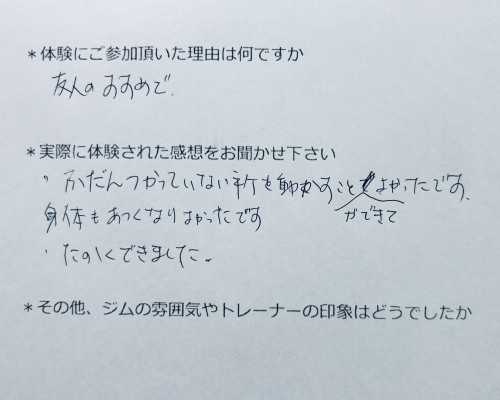 *体験にご参加頂いた理由は何ですか
友人のおすすめで.
*実際に体験された感想をお聞かせ下さい
・かだんつかっていない所を動かすことができてよかったです.
身体もあつくなりよかったです
・たのしくできました。
*その他、ジムの雰囲気やトレーナーの印象はどうでしたか